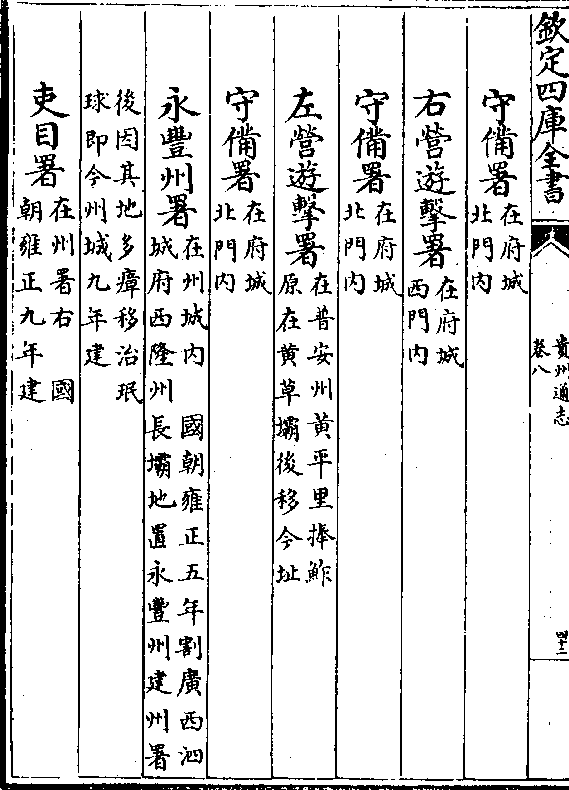 欽定四庫全書
貴州通志
卷八
四十二
守備署
在府城
北門內
右營遊擊署
在府城
西門內
守備署
在府城
北門內
左營遊擊署
在普安州黃平里捧鮓
原在黃草壩後移今址
守備署
在府城
北門內
永豐州署
在州城內 國朝雍正五年割廣西泗
城府西隆州長壩地置永豐州建州署
後因其地多瘴移治珉
球即今州城九年建
吏目署
在州署右 國
朝雍正九年建